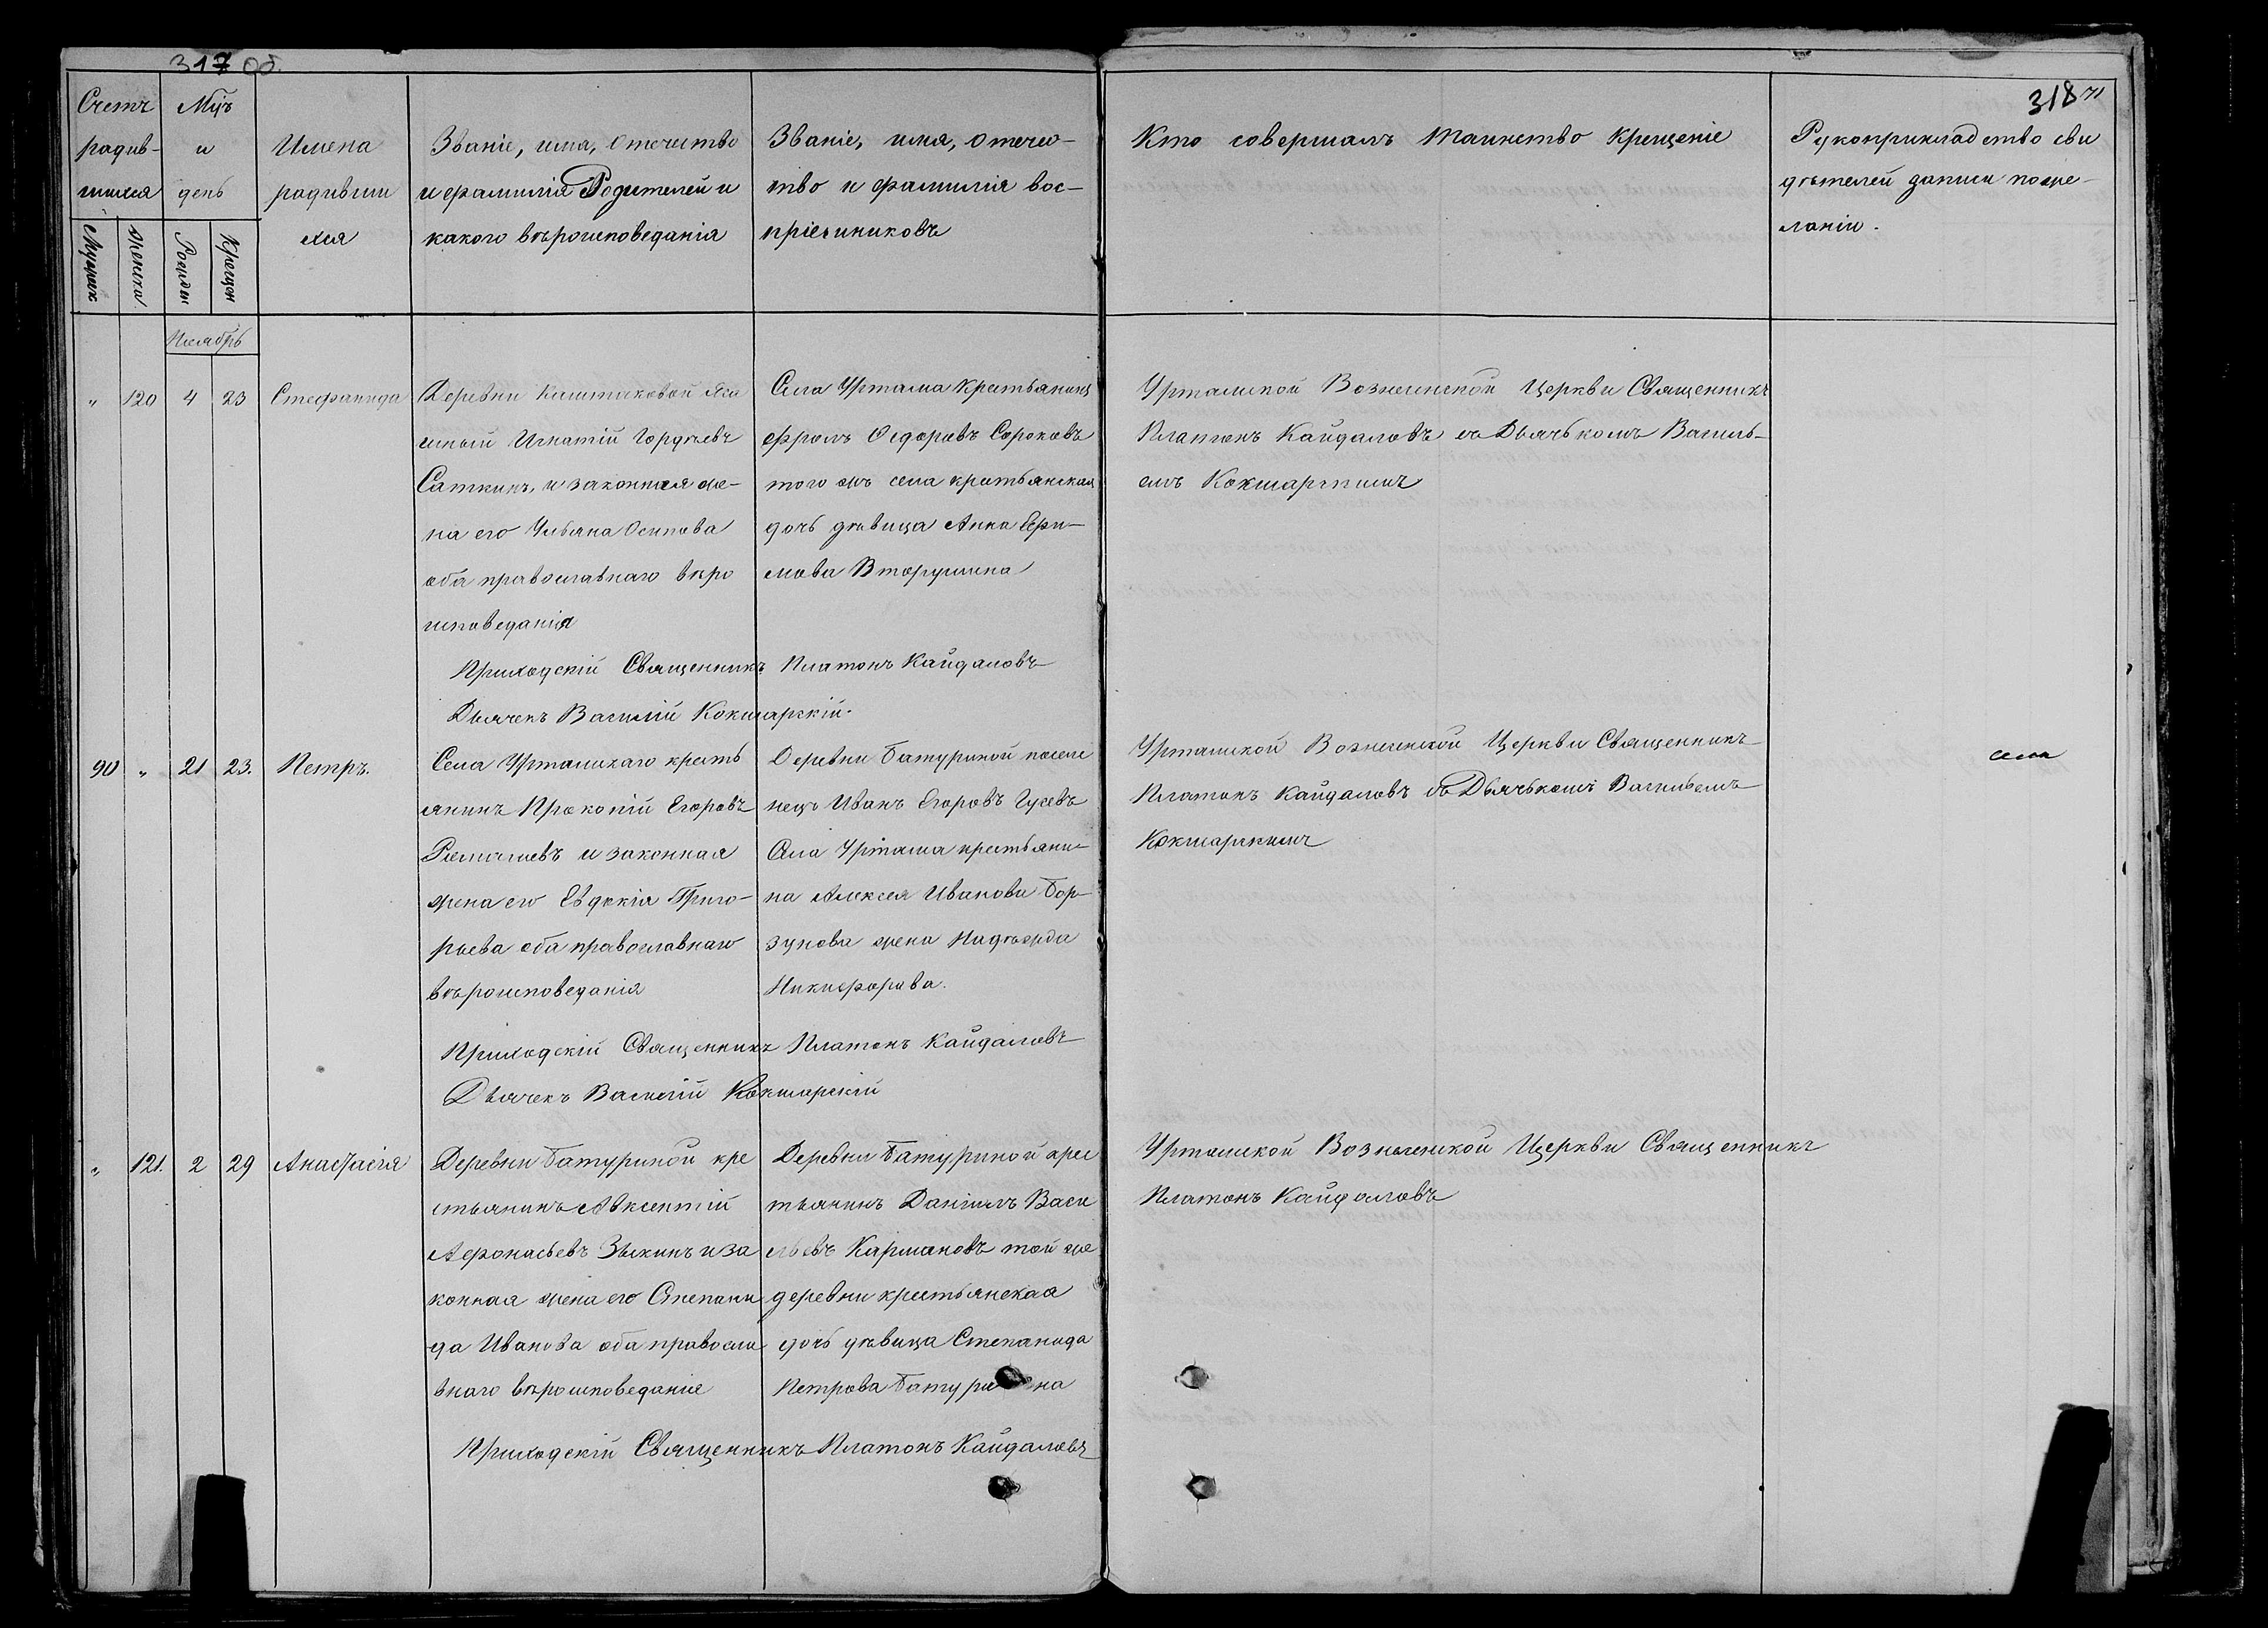 317 об.
318
71
Счетъ
родив-
шихся
Мужеск
Женска
Мцъ
и
день
Рожден
Крещен
Имена
родивши
хся
Званіе, имя, отечество
и фамилія Родителей и
какого вѣроисповеданія
Званіе, имя, отечес-
тво и фамилія вос-
пріемниковъ
Кто совершалъ таинство крещеніе
Рукоприкладство сви
дѣтелей записи по же-
ланію.
Ноябрь
" 120 4 23 Стефанида
Деревни
шный Игнатій Гордѣевъ
Саткинъ, и законная же-
на его Ульяна Осипова
оба православнаго вѣро
исповеданія
Села Уртама крестьянинъ
Фролъ Федоровъ Сороковъ
того жъ села крестьянская
дочь дѣвица Анна Ефи-
мова Вторушина
Уртамской Вознесенской Церкви Священникъ
Платонъ Кайдаловъ съ Дьячькомъ Василь-
емъ Кокшарскимъ
Приходскій Священникъ Платонъ Кайдаловъ
Дьячекъ Василій Кокшарскій.
90 " 21 23. Петръ.
Села Уртамскаго кресть
янинъ Прокопій Егоровъ
и законная
жена его Евдокія Григо-
рьева оба православнаго
вѣроисповеданія
Деревни Батуриной поселе
нецъ Иванъ Егоровъ Гусевъ
Села Уртама крестьяни-
на Алексея Иванова Бор-
зунова жена Надѣжда
Никифорова.
Уртамской Вознесенской Церкви Священникъ
Платонъ Кайдаловъ съ Дьячькомъ Васильемъ
Кокшарскимъ
Приходскій Священникъ Платонъ Кайдаловъ
Дьячекъ Василій Кокшарскій
" 121. 2 29 Анастасія
Деревни Батуриной кре
стьянинъ Авксентій
Афонасьевъ Зыкинъ и за
конная жена его Степани
да Иванова оба правосла
внаго вѣроисповеданіе
Деревни Батуриной крес
тьянинъ Даніилъ Васи
льевъ Кармановъ той же
деревни крестьянская
дочь дѣвица Степанида
Петрова Батурина
Уртамской Вознесенской Церкви Священникъ
Платонъ Кайдаловъ
Приходскій Священникъ Платонъ Кайдаловъ